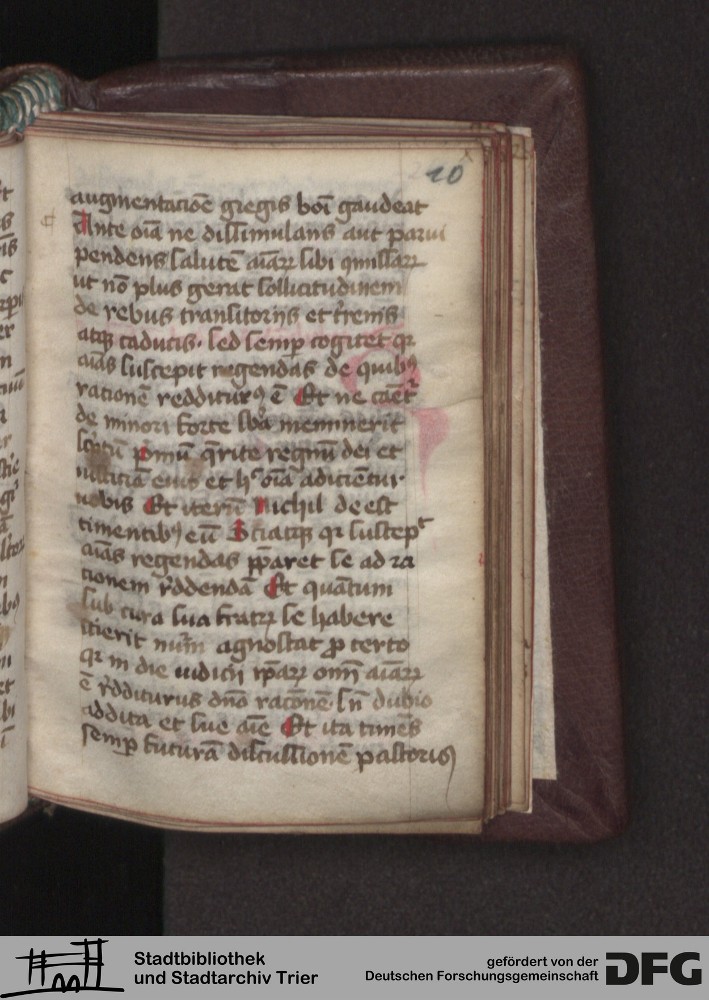 10
augmentacioē gregis boni gaudeat
Ante oīa ne dissimulans aut parui
pendens salutē aīaꝝ sibi ꝯmissaꝝ
ut nō plus gerat sollicitudinem
de rebus transitorijs et t'renis
atqꝫ caducis. sed semꝑ cogitet qꝛ
aīas suscepit regendas de quibꝰ
racionē redditurꝰ ē Et ne cāet'
de minori forte sb̄a meminerit
sc̄ptū p̄mū q̄rite regnū dei et
iusticiā eius et h' oīa adicientur
uobis Et iterū Nichil deest
timentibꝰ eū Sciatqꝫ qꝛ suscep'
aīas regendas p̄paret se ad ra
cionem r̄ddendā Et quātum
sub cura sua fratꝝ se habere
scierit num̄ agnoscat ꝓ certo
qꝛ in die iudicij ip̄aꝝ om̄ aīaꝝ
ē r̄dditurus dn̄o racōnē. sn̄ dubio
addita et sue aīe Et ita timēs
semꝑ futurā discussionē pastoris
Stadtbibliothek
und Stadtarchiv Trier
gefördert von der
Deutschen Forschungsgemeinschaft
DFG